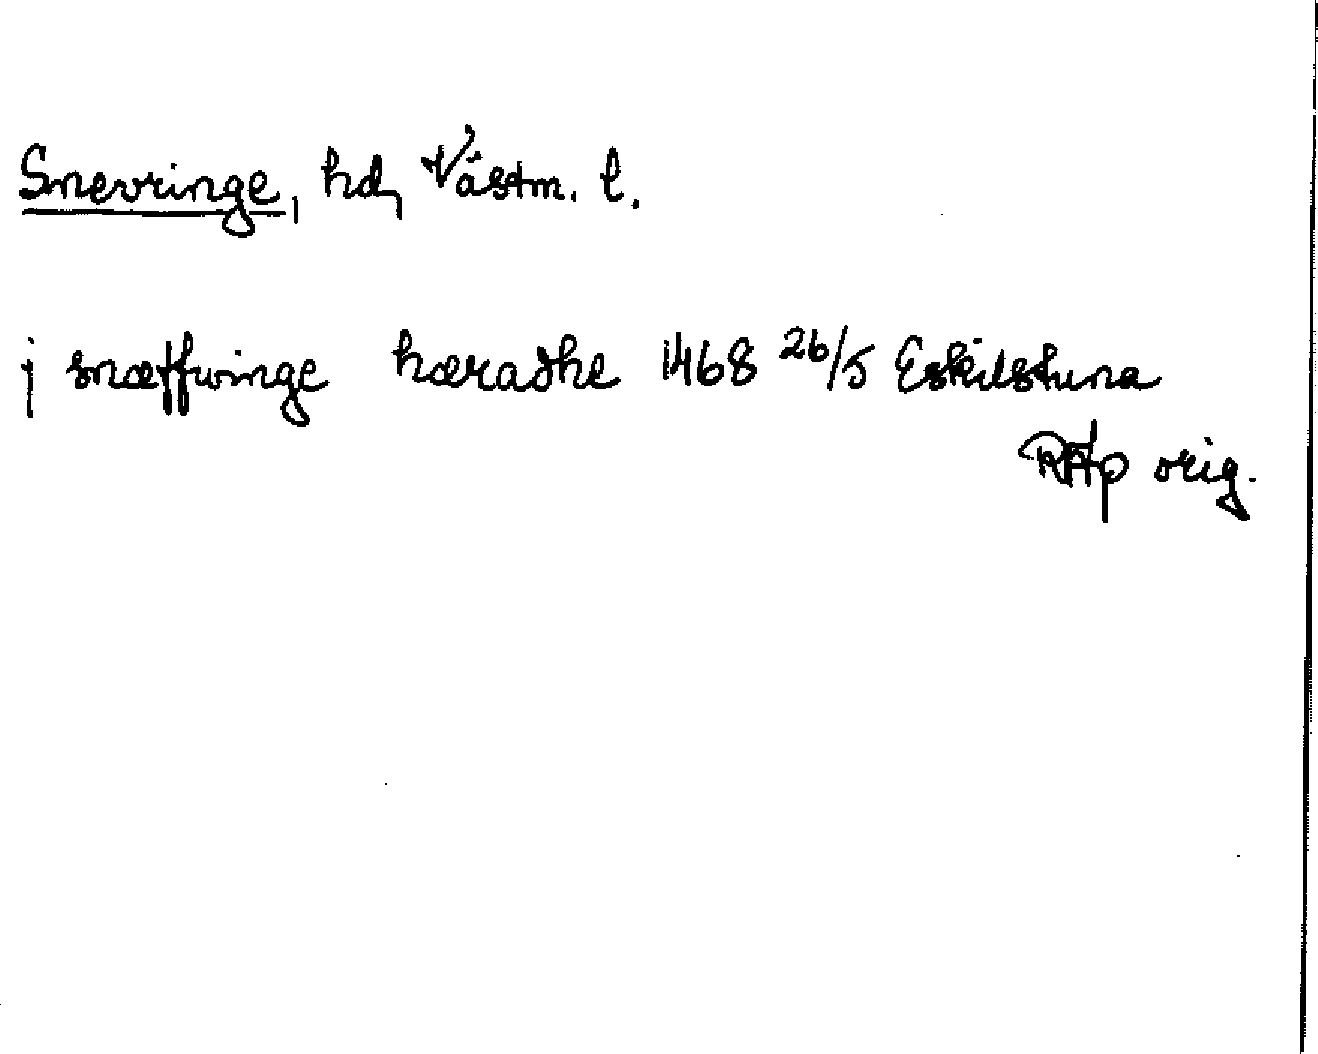 Snevringe, hd, Västm. l.
j snæffringe hæradhe 1468 26/5 Eskilstuna
RAp orig.